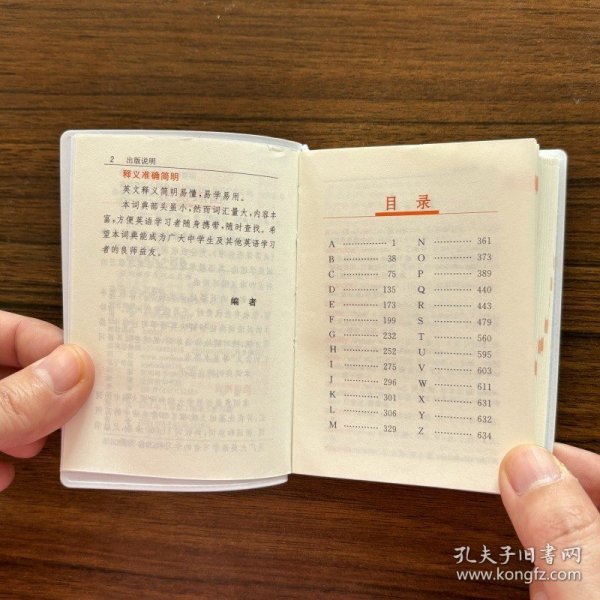 2 出版说明
释义准确简明
英文释义简明易懂,易学易用。
本词典部头虽小,然而词汇量大,内容丰
富,方便英语学习者随身携带,随时查找。希
望本词典能成为广大中学生及其他英语学习
者的良师益友。
编 者
目 录
A ………… 1
B ………… 38
C ………… 75
D ………… 135
E ………… 173
F ………… 199
G ………… 232
H ………… 252
I ………… 275
J ………… 296
K ………… 301
L ………… 306
M ………… 329
N ………… 361
O ………… 373
P ………… 389
Q ………… 440
R ………… 443
S ………… 479
T ………… 560
U ………… 595
V ………… 603
W ………… 611
X ………… 631
Y ………… 632
Z ………… 634
孔夫子旧书网
www.kongfz.com